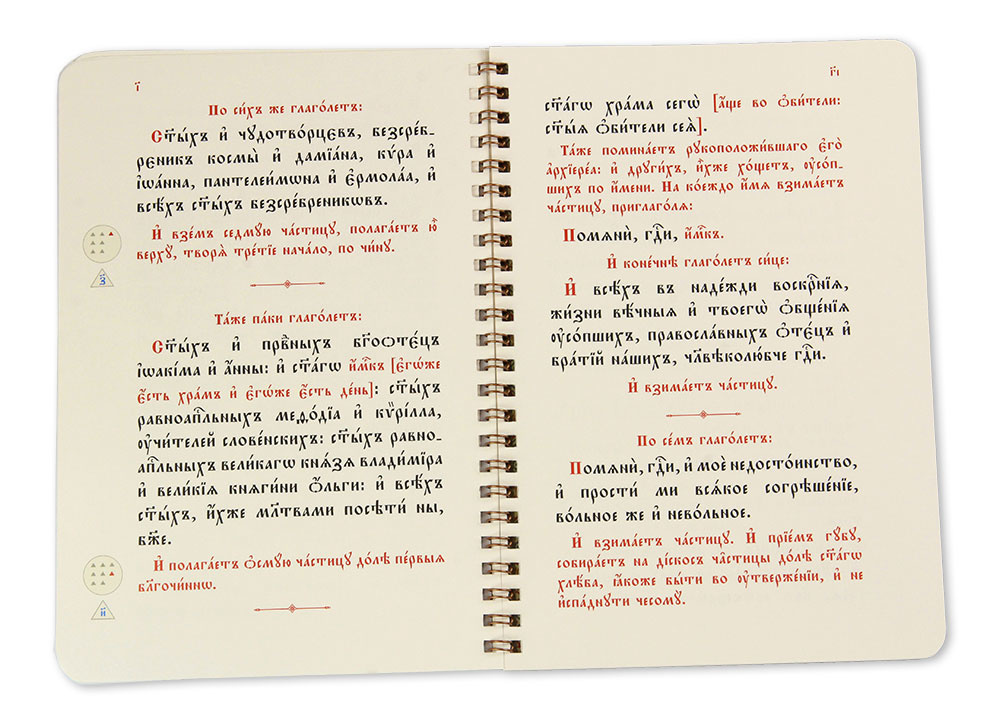 і҃
По си́хъ же глаго́летъ:
Ст҃ы́хъ и҆ чꙋдотво́рцєвъ, безсре́б-
рєникъ космы̀ и҆ дамїа́на, кѵ́ра и҆
і҆ѡа́нна, пантелеи́мѡна и҆ є҆рмола́а, и҆
всѣ́хъ ст҃ы́хъ безсре́бреникѡвъ.
И҆ взе́мъ седмꙋ́ю ча́стицꙋ, полага́етъ ю҆̀
верхꙋ̀, творѧ̀ тре́тїе нача́ло, по чи́нꙋ.
з҃
Та́же па́ки глаго́летъ:
Ст҃ы́хъ и҆ првⷣныхъ бг҃оѻте́цъ
і҆ѡакі́ма и҆ а҆́нны: и҆ ст҃а́гѡ и҆м҃къ [є҆гѡ́же
є҆́сть хра́мъ и҆ є҆гѡ́же є҆́сть де́нь]: ст҃ы́хъ
равноапⷭ҇льныхъ меѳо́дїа и҆ кѷрі́лла,
ᲂу҆чи́телей слове́нскихъ: ст҃ы́хъ равно-
апⷭ҇льныхъ вели́кагѡ кнѧ́зѧ влади́мїра
и҆ вели́кїѧ кнѧги́ни ѻ҆́льги: и҆ всѣ́хъ
ст҃ы́хъ, и҆̀хже мл҃твами посѣти́ ны,
бж҃е.
И҆ полага́етъ ѻ҆смꙋ́ю ча́стицꙋ до́лѣ пе́рвыѧ
бл҃гочи́ннѡ.
и҃
г҃і
ст҃а́гѡ хра́ма сегѡ̀ [а҆́ще во ѻ҆би́тели:
ст҃ы́ѧ ѻ҆би́тели сеѧ̀].
Та́же помина́етъ рꙋкоположи́вшаго є҆го̀
а҆рхїере́а: и҆ дрꙋги́хъ, и҆̀хже хо́щетъ, ᲂу҆со́п-
шихъ по и҆́мени. На ко́еждо и҆́мѧ взима́етъ
ча́стицꙋ, приглаго́лѧ:
Помѧнѝ, гдⷭ҇и, и҆м҃къ.
И҆ коне́чнѣ глаго́летъ си́це:
И҆ всѣ́хъ въ наде́жди воскрⷭ҇нїѧ,
жи́зни вѣ́чныѧ и҆ твоегѡ̀ ѻ҆бще́нїѧ
ᲂу҆со́пшихъ, правосла́вныхъ ѻ҆тє́цъ и҆
бра́тїй на́шихъ, чл҃вѣколю́бче гдⷭ҇и.
И҆ взима́етъ ча́стицꙋ.
По се́мъ глаго́летъ:
Помѧнѝ, гдⷭ҇и, и҆ моѐ недосто́инство,
и҆ прости́ ми всѧ́кое согрѣше́нїе,
во́льное же и҆ нево́льное.
И҆ взима́етъ ча́стицꙋ. И҆ прїе́мъ гꙋ́бꙋ,
собира́етъ на ді́скосѣ ча̑стицы до́лѣ ст҃а́гѡ
хлѣ́ба, ꙗ҆́коже бы́ти во ᲂу҆твержде́нїи, и҆ не
и҆спа́днꙋти чесомꙋ̀.